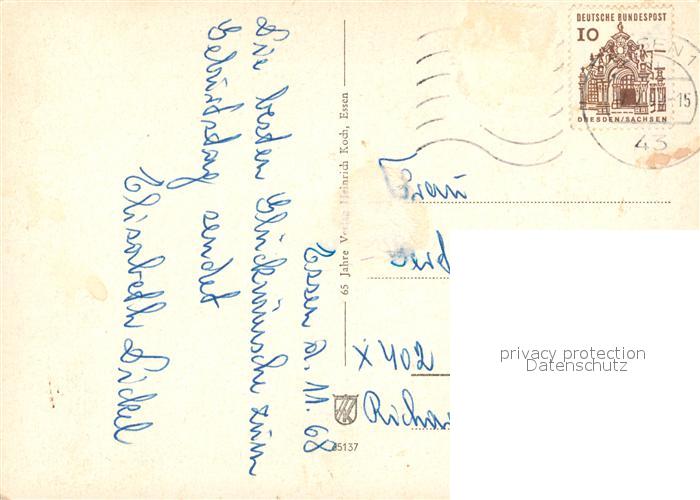 Essen d. 11.68
Die besten Glückwünsche zum
Geburtstag sendet
Elisabeth Sickel
65 Jahre Verlag Heinrich Koch, Essen
65137
DEUTSCHE BUNDESPOST
10
DRESDEN/SACHSEN
43
Frau
X 402
privacy protection
Datenschutz